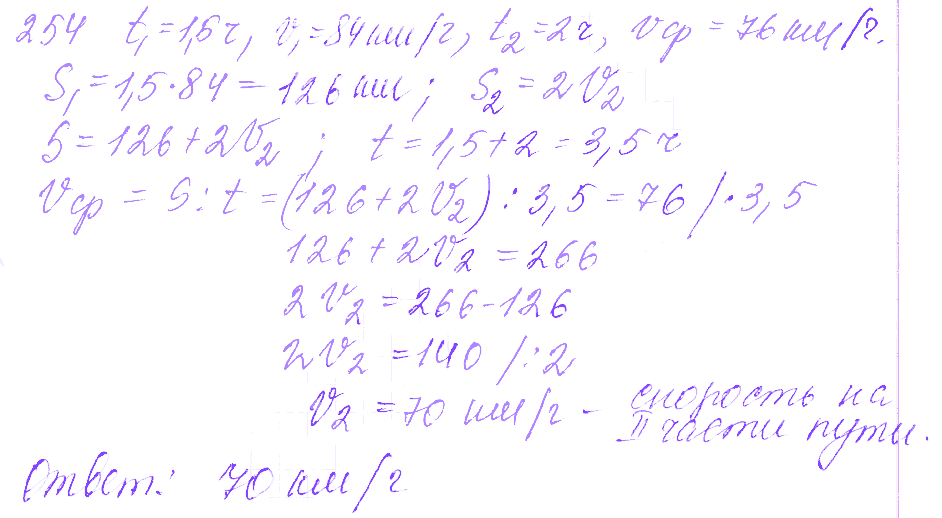 254 t₁=1,5ч, v₁=84км/г, t₂=2ч, vср=76км/г.
S₁=1,5·84=126км; S₂=2v₂
S=126+2v₂; t=1,5+2=3,5ч
vср=S:t=(126+2v₂):3,5=76 /·3,5
126+2v₂=266
2v₂=266-126
2v₂=140 /:2
v₂=70 км/г - скорость на
II части пути.
Ответ: 70 км/г